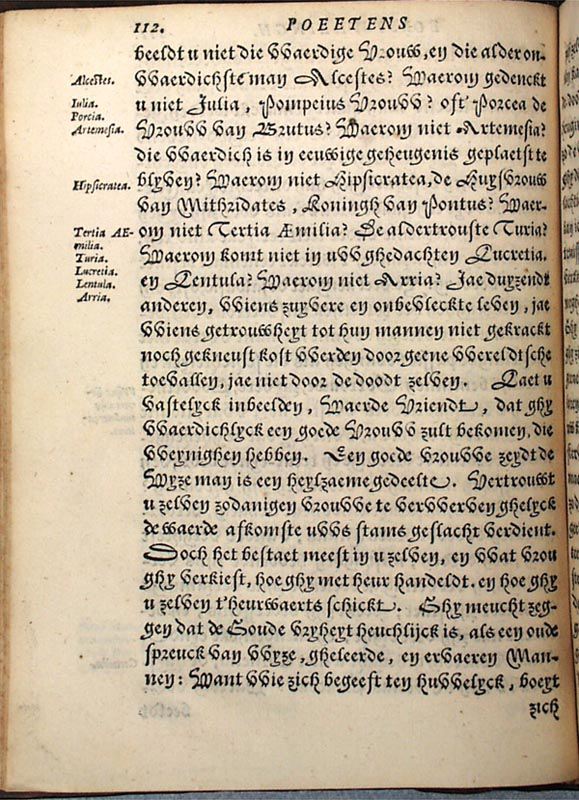 112.
POEETENS
beeldt u niet die VVaerdige Vrouvv, en die alder on-
VVaerdichste man Alcestes? Waerom gedenckt
u niet Julia, Pompeius Vrouvv? oft Porcea de
Vrouvv van Brutus? Waerom niet Artemesia?
die VVaerdich is in eeuwige geheugenis geplaetst te
blyven? Waerom niet Hipsicratea, de Huysvrouw
van Mithridates, Koningh van Pontus? Waer-
om niet Tertia Æmilia? De aldertrouste Turia?
Waerom komt niet in uvv ghedachten Lucretia.
en Lentula? Waerom niet Arria? Jae duyzendt
anderen, VViens zuyvere en onbevleckte leven, jae
VViens getrouwheyt tot hun mannen niet gekrackt
noch gekneust kost VVerden door geene VVereldtsche
toevallen, jae niet door de doodt zelven. Laet u
vastelyck inbeelden, Waerde Vriendt, dat ghy
VVaerdichlyck een goede Vrouvv zult bekomen, die
VVeynighen hebben. Een goede vrouvve zeydt de
Wyze man is een heylzaeme gedeelte. Vertrouwt
u zelven zodanigen vrouvve te vervverven ghelyck
de waerde afkomste uvvs stams geslacht verdient.
Doch het bestaet meest in u zelven, en VVat vrou
ghy verkiest, hoe ghy met heur handeldt. en hoe ghy
u zelven t'heurwaerts schickt. Ghy meucht zeg-
gen dat de Goude vryheyt heuchlijck is, als een oude
spreuck van VVyze, gheleerde, en ervaeren Man-
nen: Want VVie zich begeeft ten huvvelyck, boeyt
zich
Alcestes.
Iulia.
Porcia.
Artemesia.
Hipsicratea.
Tertia AE-
milia.
Turia.
Lucretia.
Lentula.
Arria.